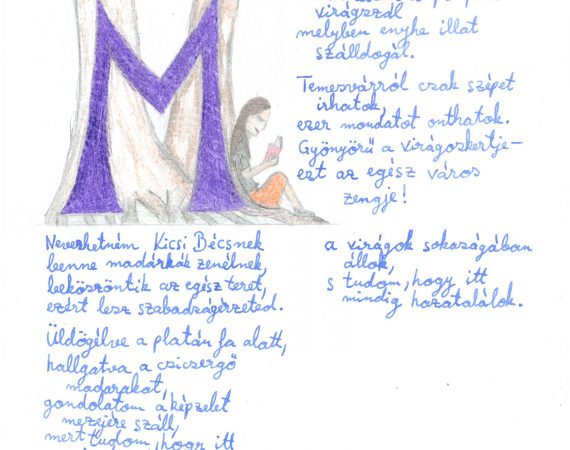 M
virágszál
melyben enyhe illat
szálldogál.
Temesvárról csak szépet
írhatok,
ezer mondatot onthatok.
Gyönyörű a virágoskertje-
ezt az egész város
zengje!
Nevezhetném Kicsi Bécsnek
benne madárkák zenélnek,
beköszöntik az egész teret,
ezért lesz szabadságérzeted.
Üldögélve a platán fa alatt,
hallgatva a csicsergő
madarakat,
gondolatom a képzelet
mezejére száll,
mert tudom, hogy itt
a virágok sokaságában
állok,
s tudom, hogy itt
mindig hazatalálok.